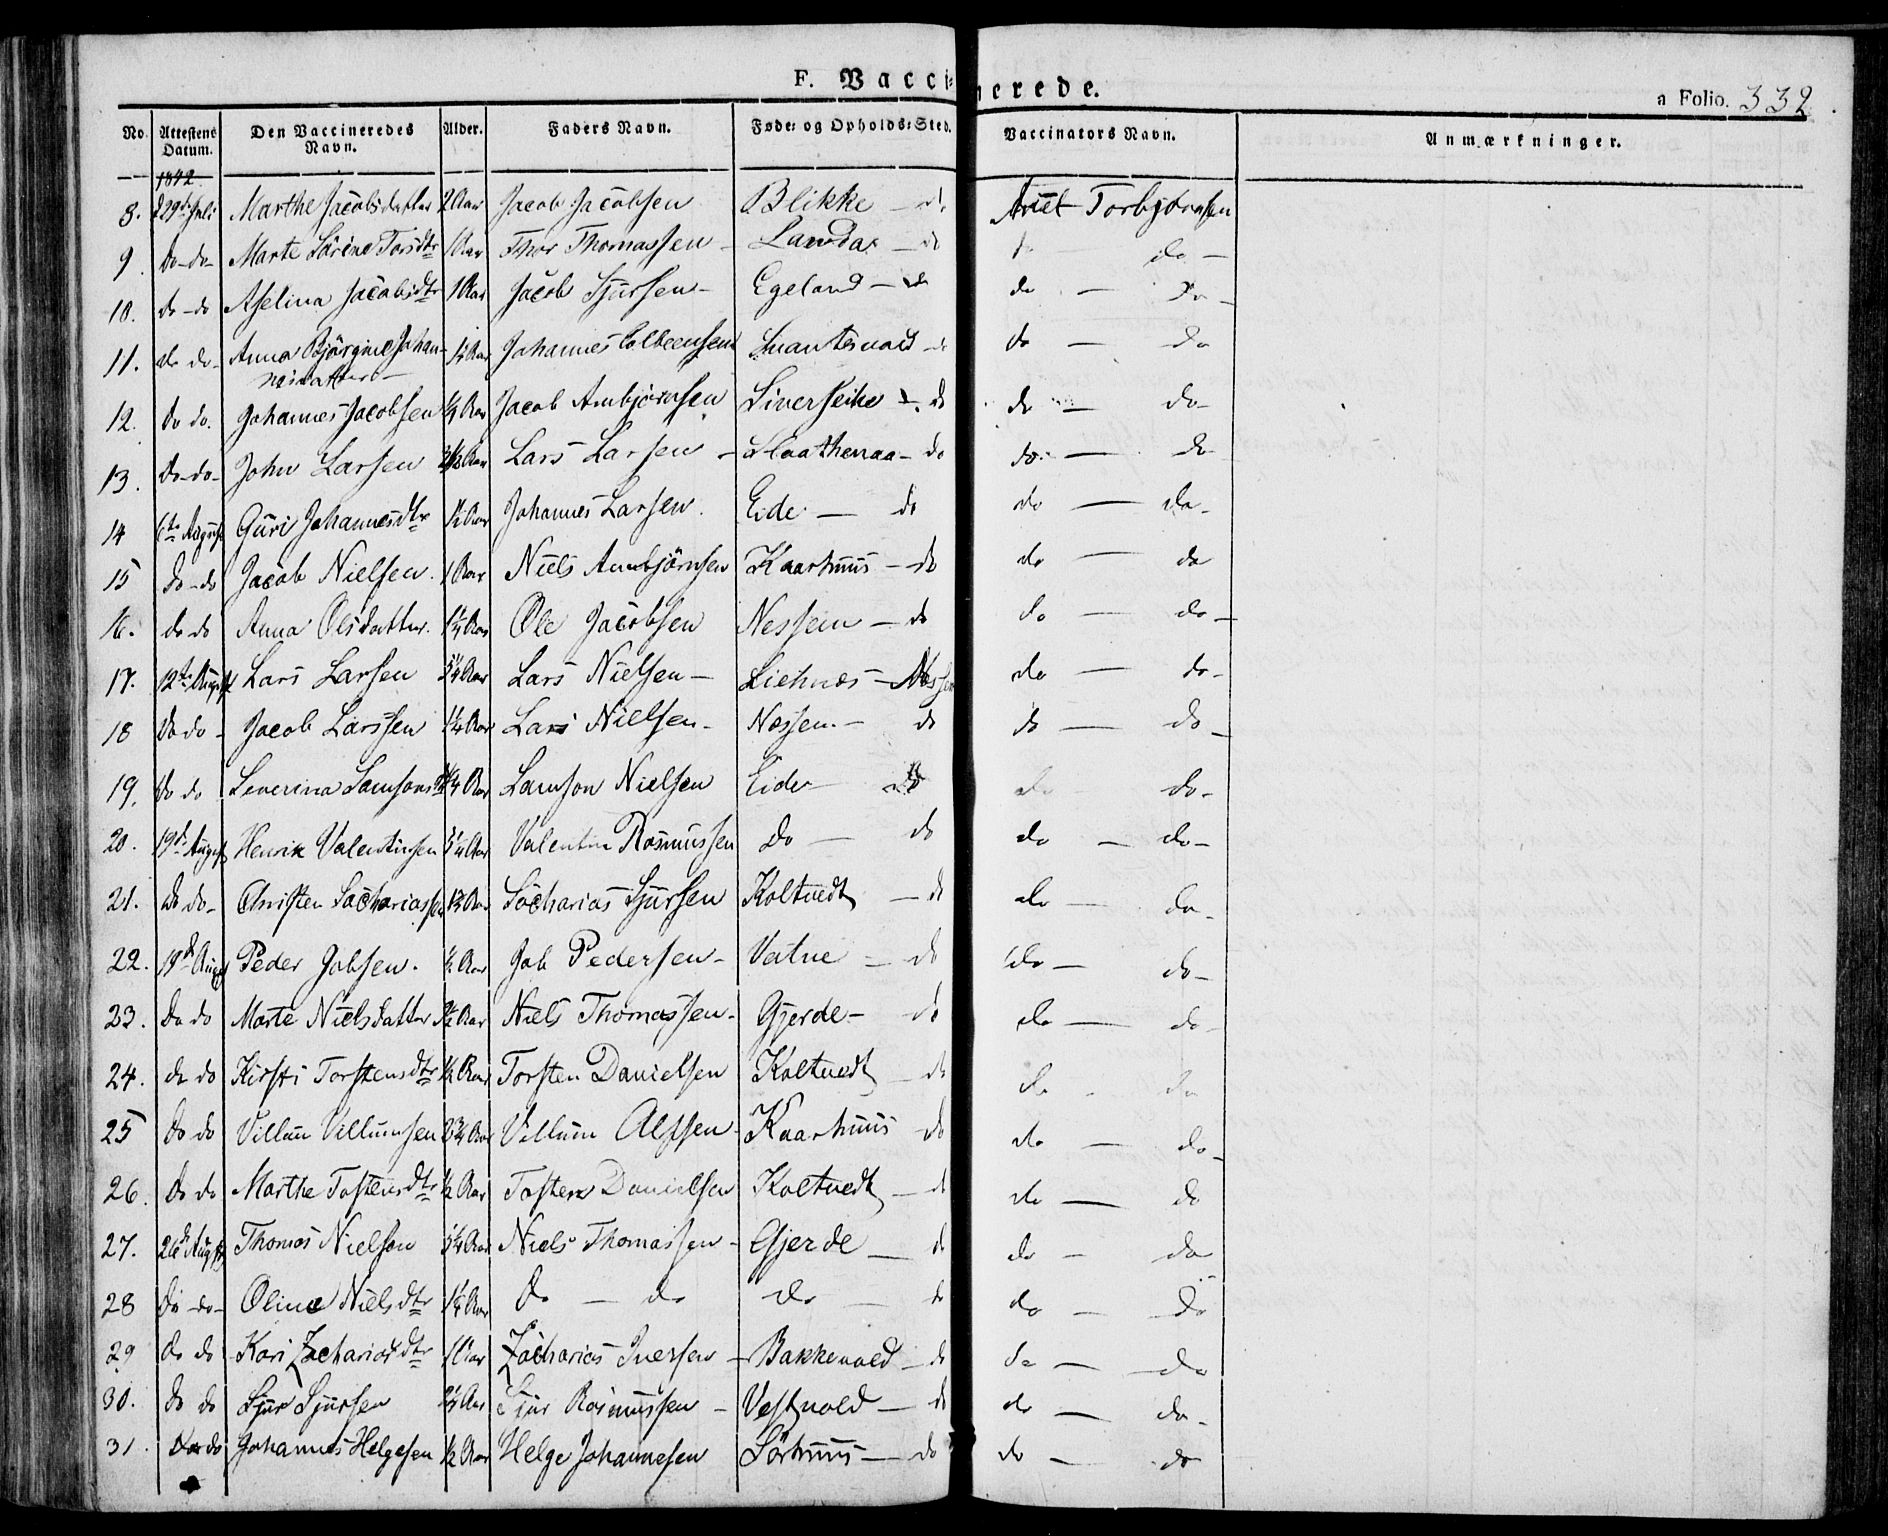 F. Vaccinerede.
a Folio. 332.
No. Attestens Datum. Den Vaccineredes Navn. Alder. Faders Navn. Føde- og Opholds-Sted. Vaccinators Navn. Anmærkninger.
1842
8. d 29de Juli Marthe Jacobsdatter 2 Aar Jacob Jacobsen Blikke - do Torbjørnsen
9. do-do- Marte Sørine Torsdtr 1 Aar Thor Thomassen - Landa - do do -
10. do-do Aselina Jacobsdtr 1 Aar Jacob Sjursen - Egeland - do do - do -
11. do do- Anna Bjørgine Johan-
nisdatter - Aar Johannes - do do - do
12. do do. Johannes Jacobsen Aar Jacob Ambjørnsen do do - do-
13. do-do- John Larsen Aar Lars Larsen - Slaathenaa - do do - do
14 August Guri Johannesdtr Aar Johannes Larsen. Eide - do do - do-
15 do-do Jacob Nielsen. 1 Aar Niels Ambjörnsen Kaarhuus - do do - do
16. do do Anna Olsdatter. 1¼ Aar Ole Jacobsen Nessen - do do - do -
17. 12te August Lars Larsen Aar Lars Nielsen - Liehnæs - do - do-
18 do do - Jacob Larssen 1¼ Aar Lars Nielsen - Nossen. - do do - do -
19. do do Severina Samsonsdtr Aar Samson Nielsen Eide - do do do-
20. 19de August Henrik Valentinsen Aar Valentin Rasmussen do - do do - do-
21. do do- Christen Sachariassen Aar Sacharias Sjursen Koltvedt - do do - do-
22. 19de August Peder Jobsen. ½ Aar Job Pedersen - Vatne - do do - do-
23. do do Marte Nielsdatter Aar Niels Thomassen - Gjerde - do do - do-
24. do do Kirsti Torstensdtr ½ Aar Torsten Danielsen Koltvedt - do do - do
25 do do Villum Villumsen Aar Villum Alfsen - Kaarhuus do do - do-
26. do do Marthe Tostensdtr ½ Aar Tosten Danielsen Koltvedt - do do - do
27. 26de Augst Thomas Nielsen Aar Niels Thomassen - Gjerde - do do - do
28 do-do- Oline Nielsdtr 1¼ Aar do - do do - do do - do
29 do do Kari Zachariasdtr 1 Aar Zacharias Iversen - Bakkevold - do do - do
30. do do Sjur Sjursen Aar Sjur Rasmussen - Vestvold - do do - do-
31. do do Johannes Helgesen ½ Aar Helge Johannesen Sørhuus - do do - do